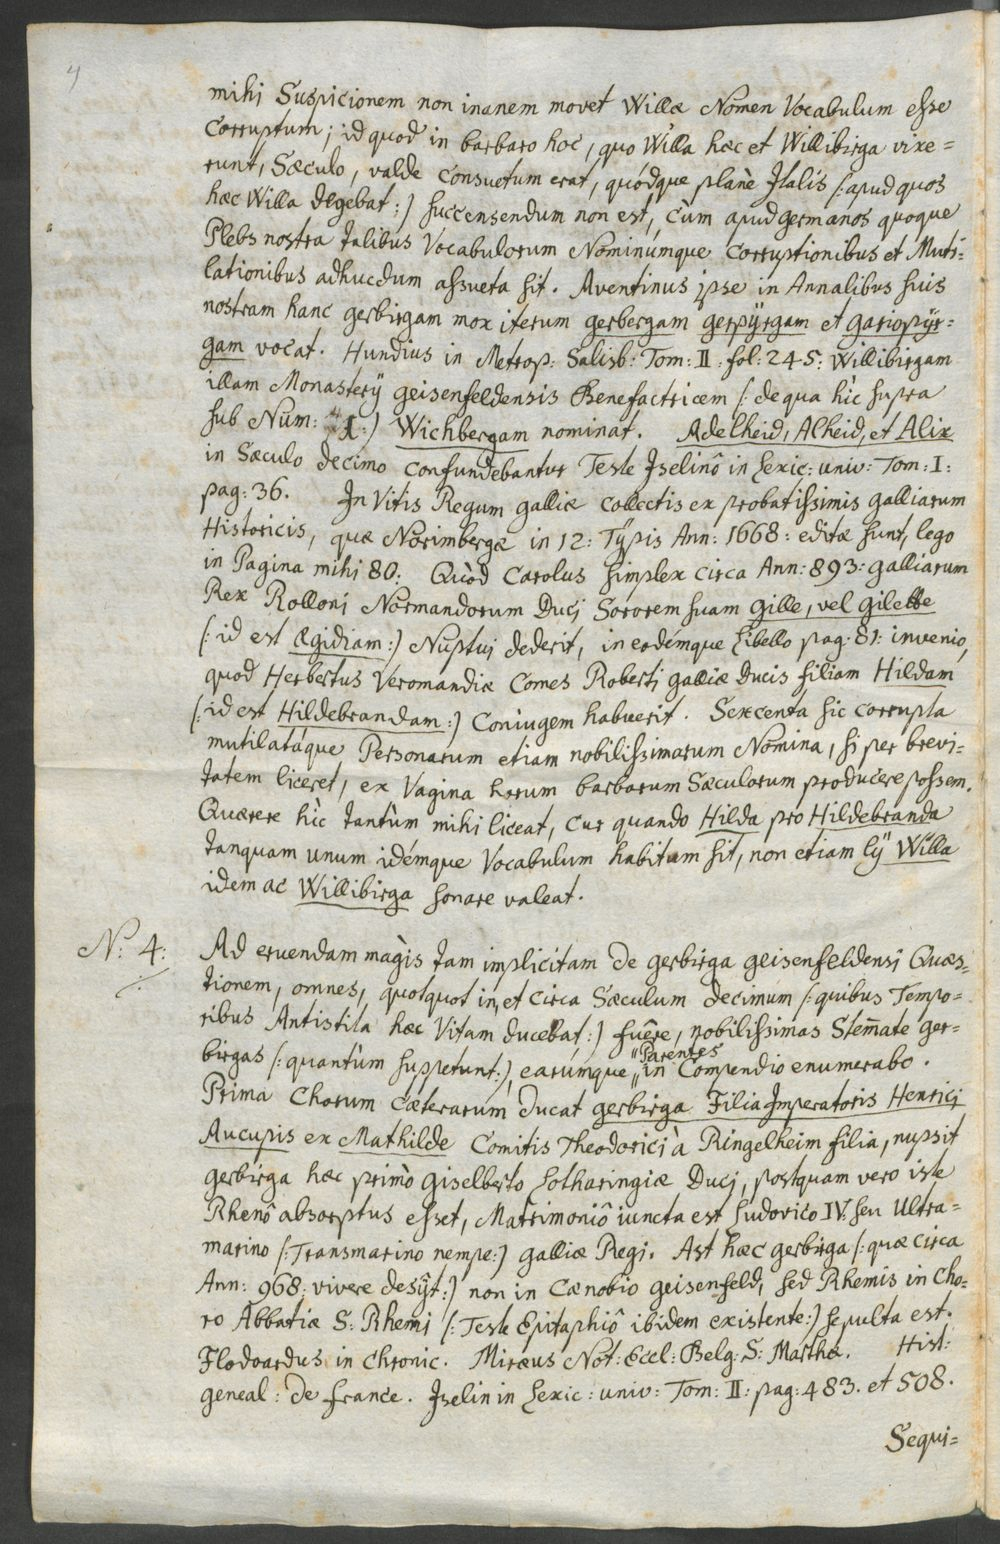 4
mihi Suspicionem non inanem movet Willæ Nomen Vocabulum esse
Corruptum; id quod in barbaro hoc, quo Willa hæc et Willibirga vixe=
runt, Sæculo, valde Consuetum erat, quódque planè Italis /: apud quos
hæc Willa degebat :/ succensendum non est, cùm apud germanos quoque
Plebs nostra talibus Vocabulorum Nominúmque Corruptionibus et Muti=
lationibus adhucdum assveta sit. Aventinus ipse in Annalibus suis
nostram hanc gerbirgam mox iterum gerbergam gerpÿrgam et gariopÿr=
gam vocat. Hundius in Metrop: Salisb: Tom: II. fol: 245: Willibirgam
illam Monasterÿ geisenfeldensis Benefactricem /: de qua hìc supra
sub Num: 1 :/ Wichbergam nominat. Adelheid, Alheid, et Alix
in Sæculo decimo confundebantur Teste Iselinô in Lexic: univ: Tom: I:
pag: 36. In Vitis Regum galliæ Collectis ex probatissimis galliarum
Historicis, quæ Norimbergæ in 12: Tÿpis Ann: 1668: editæ sunt, lego
in Pagina mihi 80: Quòd Carolus simplex circa Ann: 893: galliarum
Rex Rolloni Normandorum Duci Sororem suam Gille, vel gilette
/: id est Ægidiam :/ Nuptui dederit, in eodémque Libello pag: 81: invenio,
quod Herbertus Veromandiæ Comes Roberti galliæ Ducis filiam Hildam
/: id est Hildebrandam :/ Coniugem habuerit. Sexcenta sic corrupta
mutilatáque Personarum etiam nobilissimarum Nomina, si per brevi=
tatem liceret, ex Vagina horum barbarum Sæculorum producere possem.
Quærere hìc tantùm mihi liceat, cur quando Hilda pro Hildebranda
tanquam unum idémque Vocabulum habitum sit, non etiam lÿ Willa
idem ac Willibirga sonare valeat.
N.º 4:
Ad eruendam magìs tam implicitam De gerbirga geisenfeldensi Quæs=
tionem, omnes, quotquot in, et circa Sæculum decimum /: quibus Tempo=
ribus Antistita hæc Vitam ducebat :/ fuêre, nobilissimas Stem̄ate ger=
birgas /: quantùm suppetunt :/, earúmque " in Compendio enumerabo.
" Parentes
Prima Chorum Cæterarum ducat gerbirga Filia Imperatoris Henrici
Aucupis ex Mathilde Comitis Theodorici à Ringelheim filia, nupsit
gerbirga hæc primò Giselberto Lotharingiæ Duci, postquam vero iste
Rhenô absorptus esset, Matrimoniô iuncta est Ludovico IV. seu Ultra=
marino /: Transmarino nempe :/ galliæ Regi. Ast hæc gerbirga /: quæ circa
Ann: 968: vivere desÿt :/ non in Cænobio geisenfeld, sed Rhemis in Cho=
ro Abbatiæ S: Rhemi /: Teste Epitaphiô ibidem existente :/ sepulta est.
Flodoardus in Chronic. Miræus Not: Eccl: Belg: S: Martha. Hist:
geneal: de france. Iselin in Lexic: univ: Tom: II: pag: 483. et 508.
Sequi=